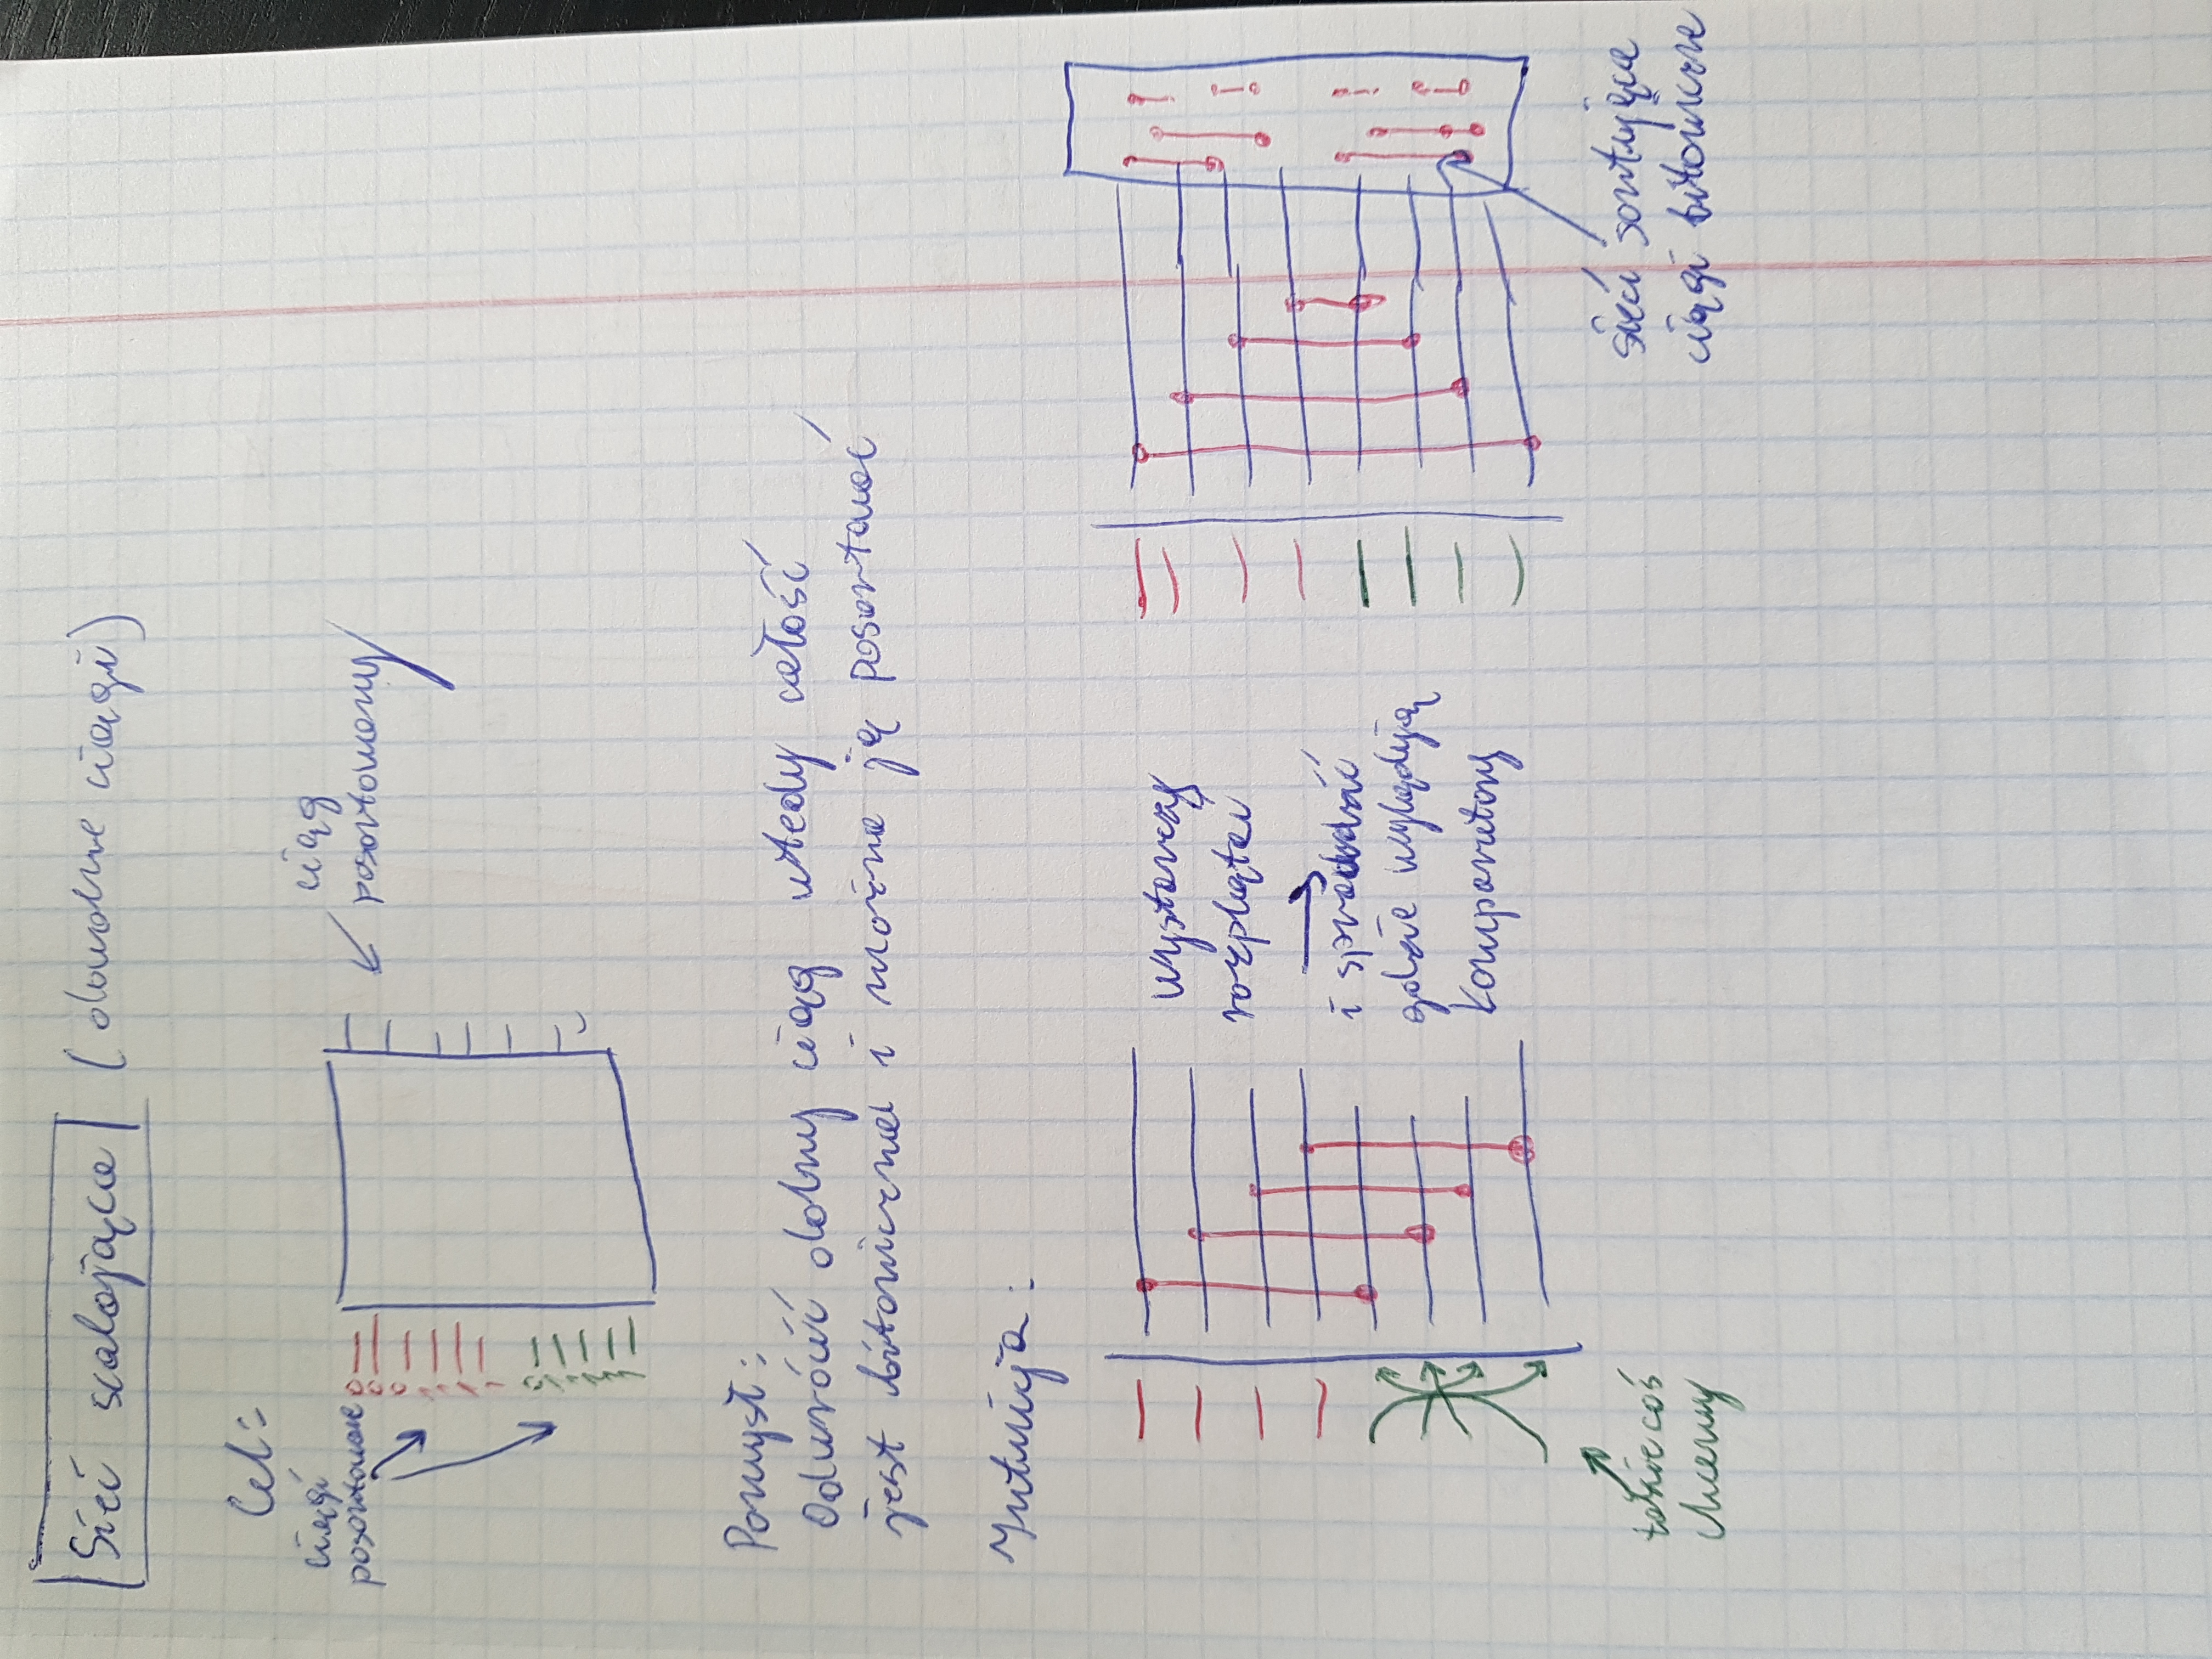 Sieć scalająca (dowolne ciągi)
Cel:
ciągi
posortowane
ciąg
posortowany
Pomysł:
Odwróćić dolny ciąg wtedy całość
jest bitoniczna i można ją posortować
Intuicja:
Wystarczy
rozplątać
i sprawdzić
gdzie wylądują
komparatory
takie coś
chcemy
sieć sortująca
ciągi bitoniczne